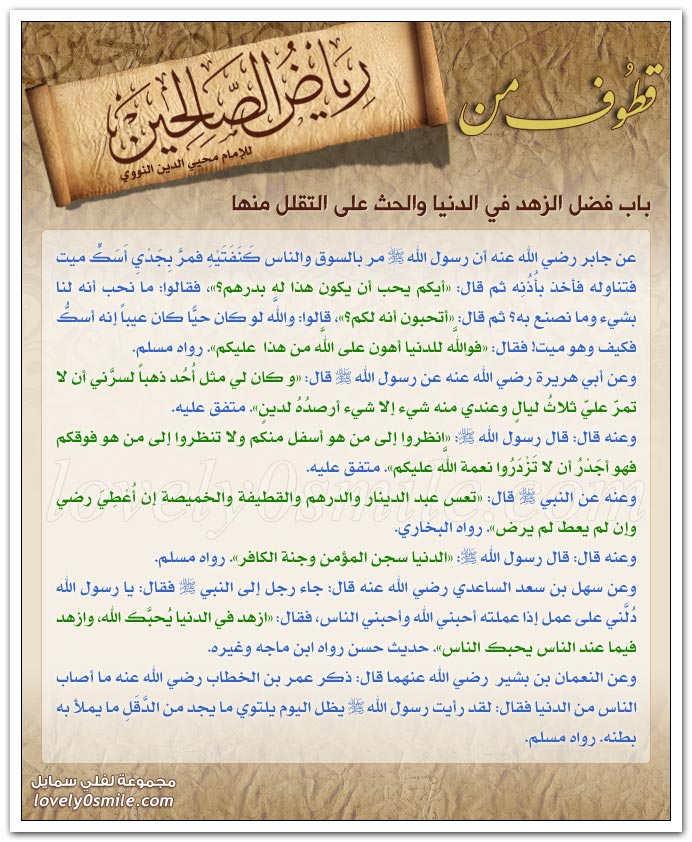 قطوف من
رياض الصالحين
للإمام محيي الدين النووي
باب فضل الزهد في الدنيا والحث على التقلل منها
عن جابر رضي الله عنه أن رسول الله ﷺ مر بالسوق والناس كَنَفَتَيْهِ فمرَّ بِجَدْيٍ أَسَكٍّ ميت
فتناوله فأخذ بأُذُنِه ثم قال: «أيكم يحب أن يكون هذا له بدرهم؟»، فقالوا: ما نحب أنه لنا
بشيء وما نصنع به؟ ثم قال: «أتحبون أنه لكم؟»، قالوا: والله لو كان حيًّا كان عيباً إنه أسكُّ
فكيف وهو ميت! فقال: «فوالله للدنيا أهون على الله من هذا عليكم». رواه مسلم.
وعن أبي هريرة رضي الله عنه عن رسول الله ﷺ قال: «و كان لي مثل أُحُد ذهباً لسرَّني أن لا
تمرّ عليّ ثلاثُ ليالٍ وعندي منه شيء إلا شيء أرصدُهُ لدينٍ». متفق عليه.
وعنه قال: قال رسول الله ﷺ: «انظروا إلى من هو أسفل منكم ولا تنظروا إلى من هو فوقكم
فهو أجَدْرُ أن لا تَزْدَرُوا نعمة الله عليكم». متفق عليه.
وعنه عن النبي ﷺ قال: «تعس عبد الدينار والدرهم والقطيفة والخميصة إن أُعْطِيَ رضي
وإن لم يعط لم يرض». رواه البخاري.
وعنه قال: قال رسول الله ﷺ: «الدنيا سجن المؤمن وجنة الكافر». رواه مسلم.
وعن سهل بن سعد الساعدي رضي الله عنه قال: جاء رجل إلى النبي ﷺ فقال: يا رسول الله
دُلَّني على عمل إذا عملته أحبني الله وأحبني الناس، فقال: «ازهد في الدنيا يُحبَّك الله، وازهد
فيما عند الناس يحبك الناس». حديث حسن رواه ابن ماجه وغيره.
وعن النعمان بن بشير رضي الله عنهما قال: ذكر عمر بن الخطاب رضي الله عنه ما أصاب
الناس من الدنيا فقال: لقد رأيت رسول الله ﷺ يظل اليوم يلتوي ما يجد من الدَّقَلِ ما يملأ به
بطنه. رواه مسلم.
lovely0smile.com
مجموعة لفلي سمايل
lovely0smile.com